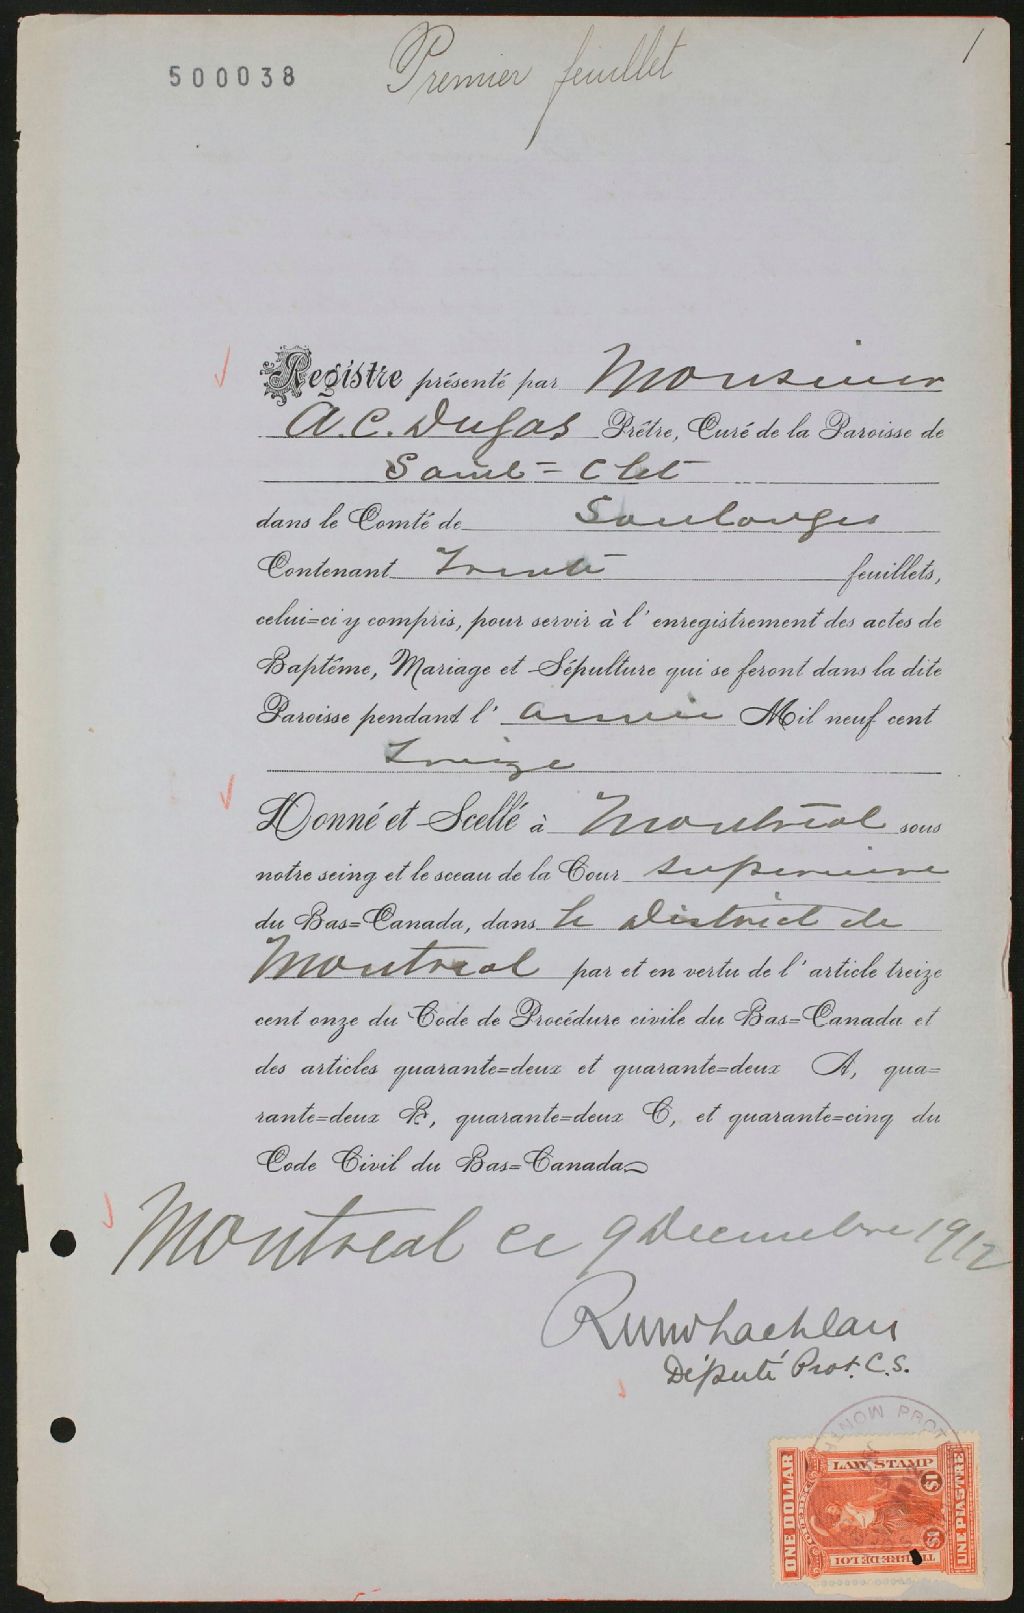 500038
Premier feuillet
1
Registre présenté par Monsieur
A. C. Dugas Prêtre, Curé de la Paroisse de
Saint=Clet
dans le Comté de Soulanges
Contenant Trente feuillets,
celui=ci y compris, pour servir à l'enregistrement des actes de
Baptême, Mariage et Sépulture qui se feront dans la dite
Paroisse pendant l'année Mil neuf cent
Treize
Donné et Scellé à Montréal sous
notre seing et le sceau de la Cour supérieure
du Bas=Canada, dans le District de
Montréal par et en vertu de l'article treize
cent onze du Code de Procédure civile du Bas=Canada et
des articles quarante=deux et quarante=deux A, qua=
rante=deux B, quarante=deux C, et quarante=cinq du
Code Civil du Bas=Canada
Montreal ce 9 Decembre 1912
Député Prot. C. S.
LAW STAMP
ONE DOLLAR
UNE PIASTRE
$1
$1
TIMBRE DE LOI